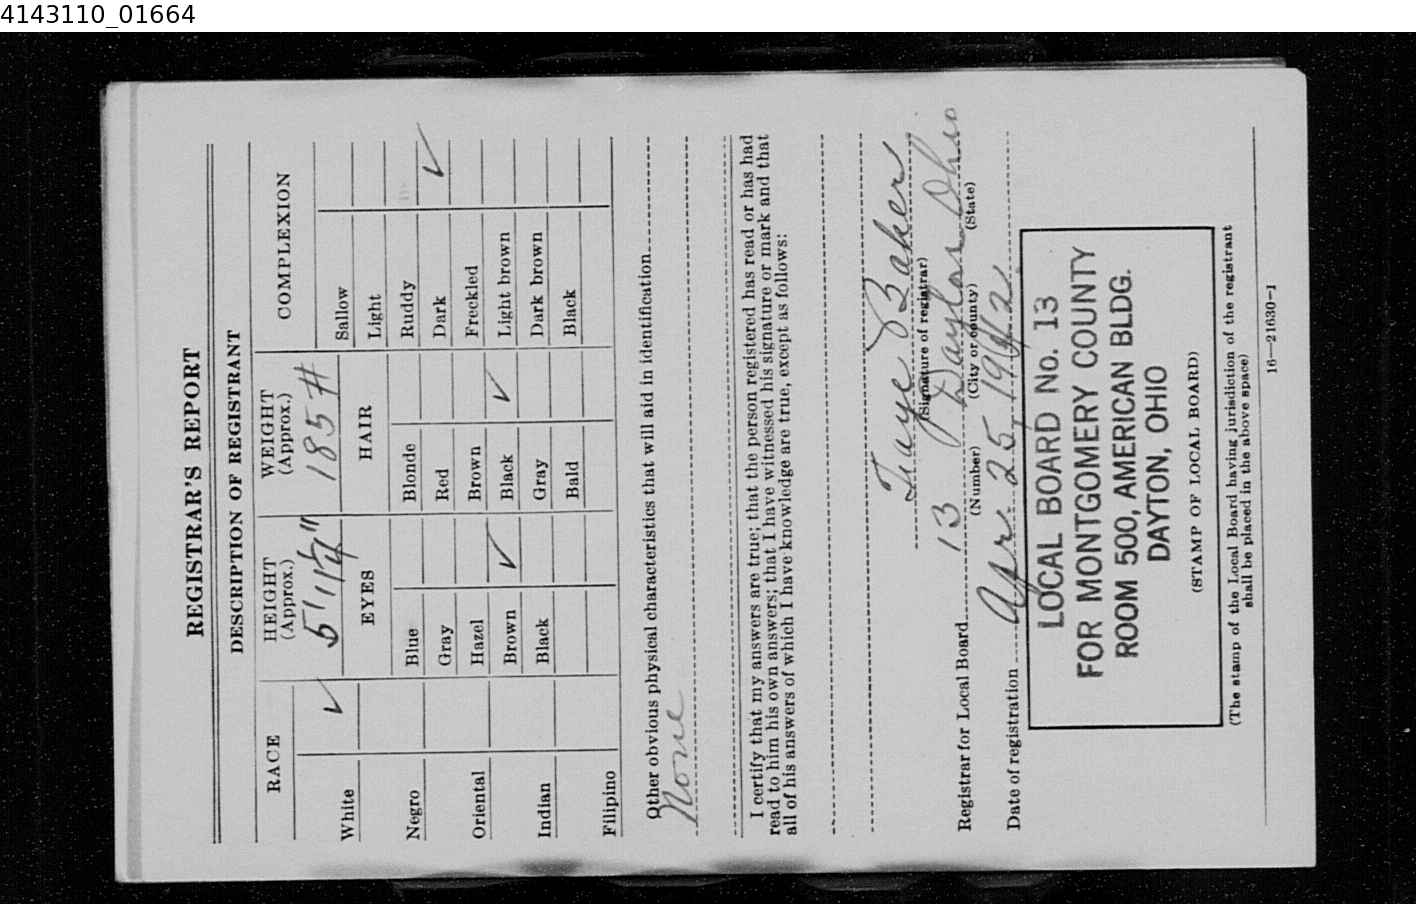 4143110_01664
REGISTRAR'S REPORT
DESCRIPTION OF REGISTRANT
RACE
HEIGHT
(Approx.)
WEIGHT
(Approx.)
COMPLEXION
5' 11½"
185 #
White ✓
Negro
Oriental
Indian
Filipino
EYES
Blue
Gray
Hazel
Brown ✓
Black
HAIR
Blonde
Red
Brown
Black ✓
Gray
Bald
Sallow
Light
Ruddy
Dark ✓
Freckled
Light brown
Dark brown
Black
Other obvious physical characteristics that will aid in identification
None
I certify that my answers are true; that the person registered has read or has had
read to him his own answers; that I have witnessed his signature or mark and that
all of his answers of which I have knowledge are true, except as follows:
Faye Baker
(Signature of registrar)
Registrar for Local Board 13 Dayton Ohio
(Number) (City or county) (State)
Date of registration Apr. 25, 1942
LOCAL BOARD No. 13
FOR MONTGOMERY COUNTY
ROOM 500, AMERICAN BLDG.
DAYTON, OHIO
(STAMP OF LOCAL BOARD)
(The stamp of the Local Board having jurisdiction of the registrant
shall be placed in the above space)
16—21630-1